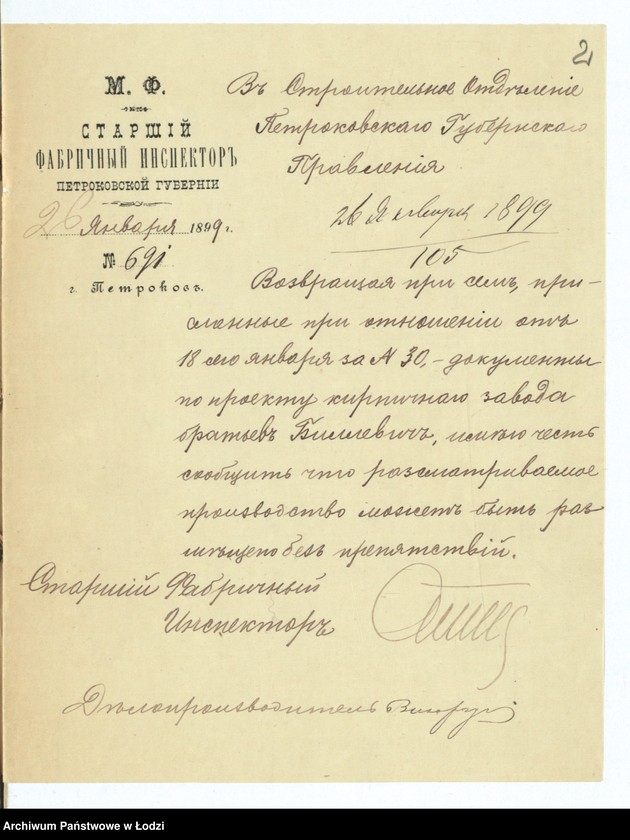 2
М. Ф.
СТАРШІЙ
ФАБРИЧНЫЙ ИНСПЕКТОРЪ
ПЕТРОКОВСКОЙ ГУБЕРНІИ
26 Января 1899 г.
№ 691
г. Петроковъ.
Въ Строительное Отдѣленіе
Петроковскаго Губернскаго
Правленія
26 Января 1899
105
Возвращая при семъ, при-
сланные при отношеніи отъ
18 сего января за № 30,- документы
по проекту кирпичнаго завода
братьевъ Биллевичъ, имѣю честь
сообщить что разсматриваемое
производство можетъ быть раз
мѣщено безъ препятствій.
Старшій Фабричный
Инспекторъ
Дѣлопроизводитель
Archiwum Państwowe w Łodzi